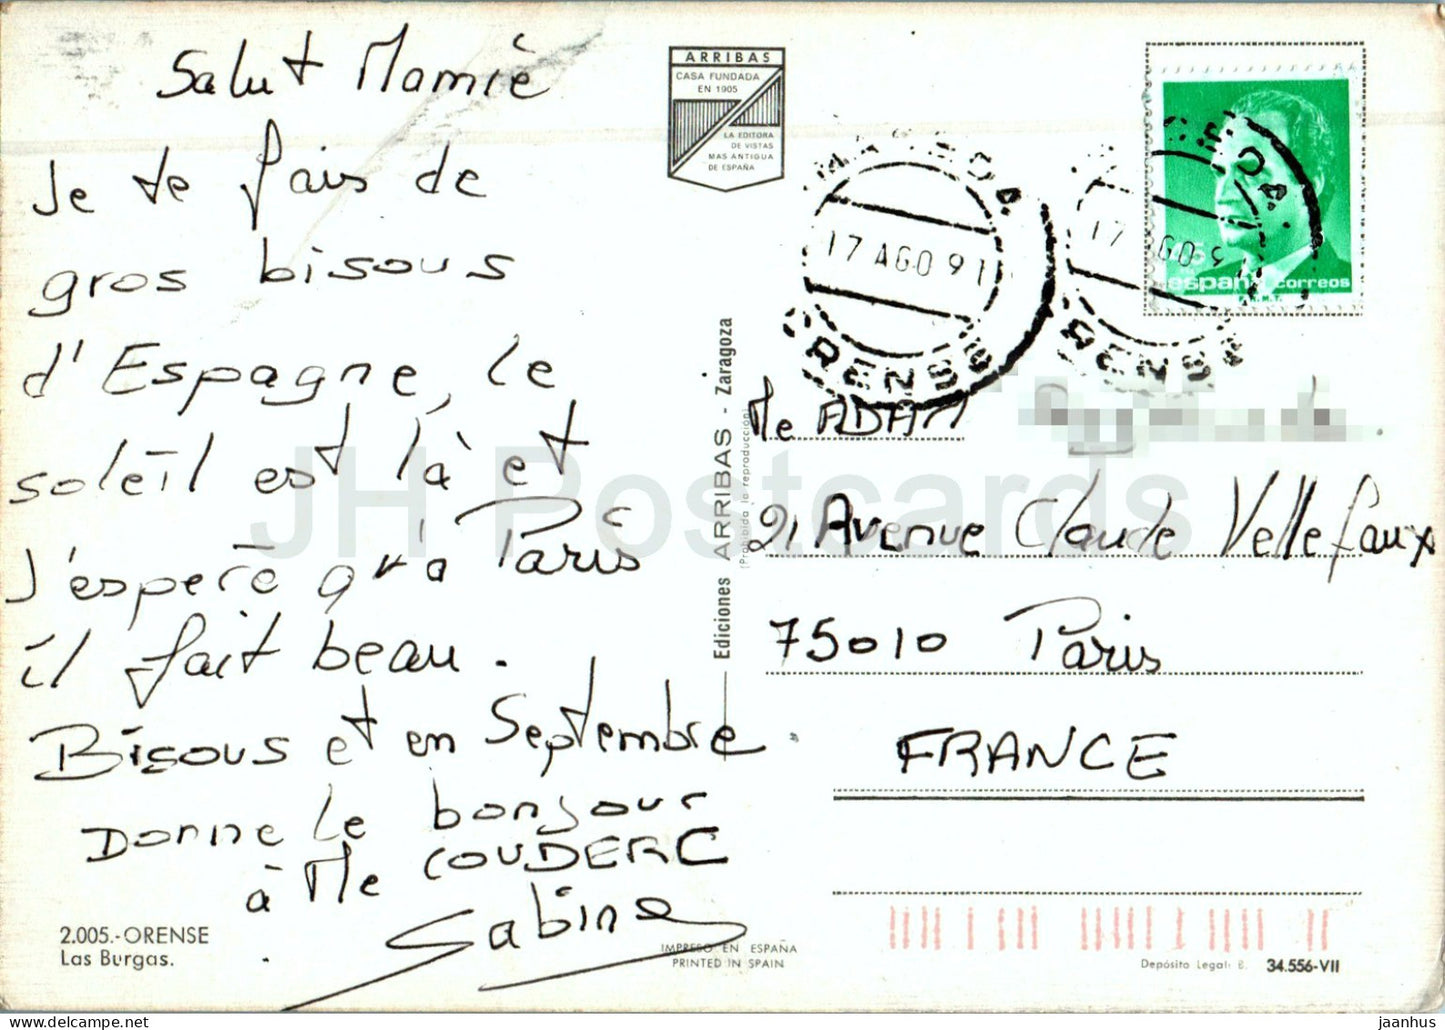 Salut Mamie
Je te fais de
gros bisous
d'Espagne, le
soleil est là et
J'espère qu'à Paris
il fait beau.
Bisous et en Septembre
Donne le bonjour
à Me COUDERC
Sabine
2.005.-ORENSE
Las Burgas.
ARRIBAS
CASA FUNDADA
EN 1905
LA EDITORA
DE VISTAS
MAS ANTIGUA
DE ESPAÑA
Ediciones ARRIBAS - Zaragoza
(Prohibida la reproducción)
IMPRESO EN ESPAÑA
PRINTED IN SPAIN
17 AGO 91
ORENSE
17 AGO 9
ORENSE
españa correos
Me ADAM
21 Avenue Claude Vellefaux
75010 Paris
FRANCE
Depósito Legal: B. 34.556-VII
JH Postcards
jaanhus © delcampe.net